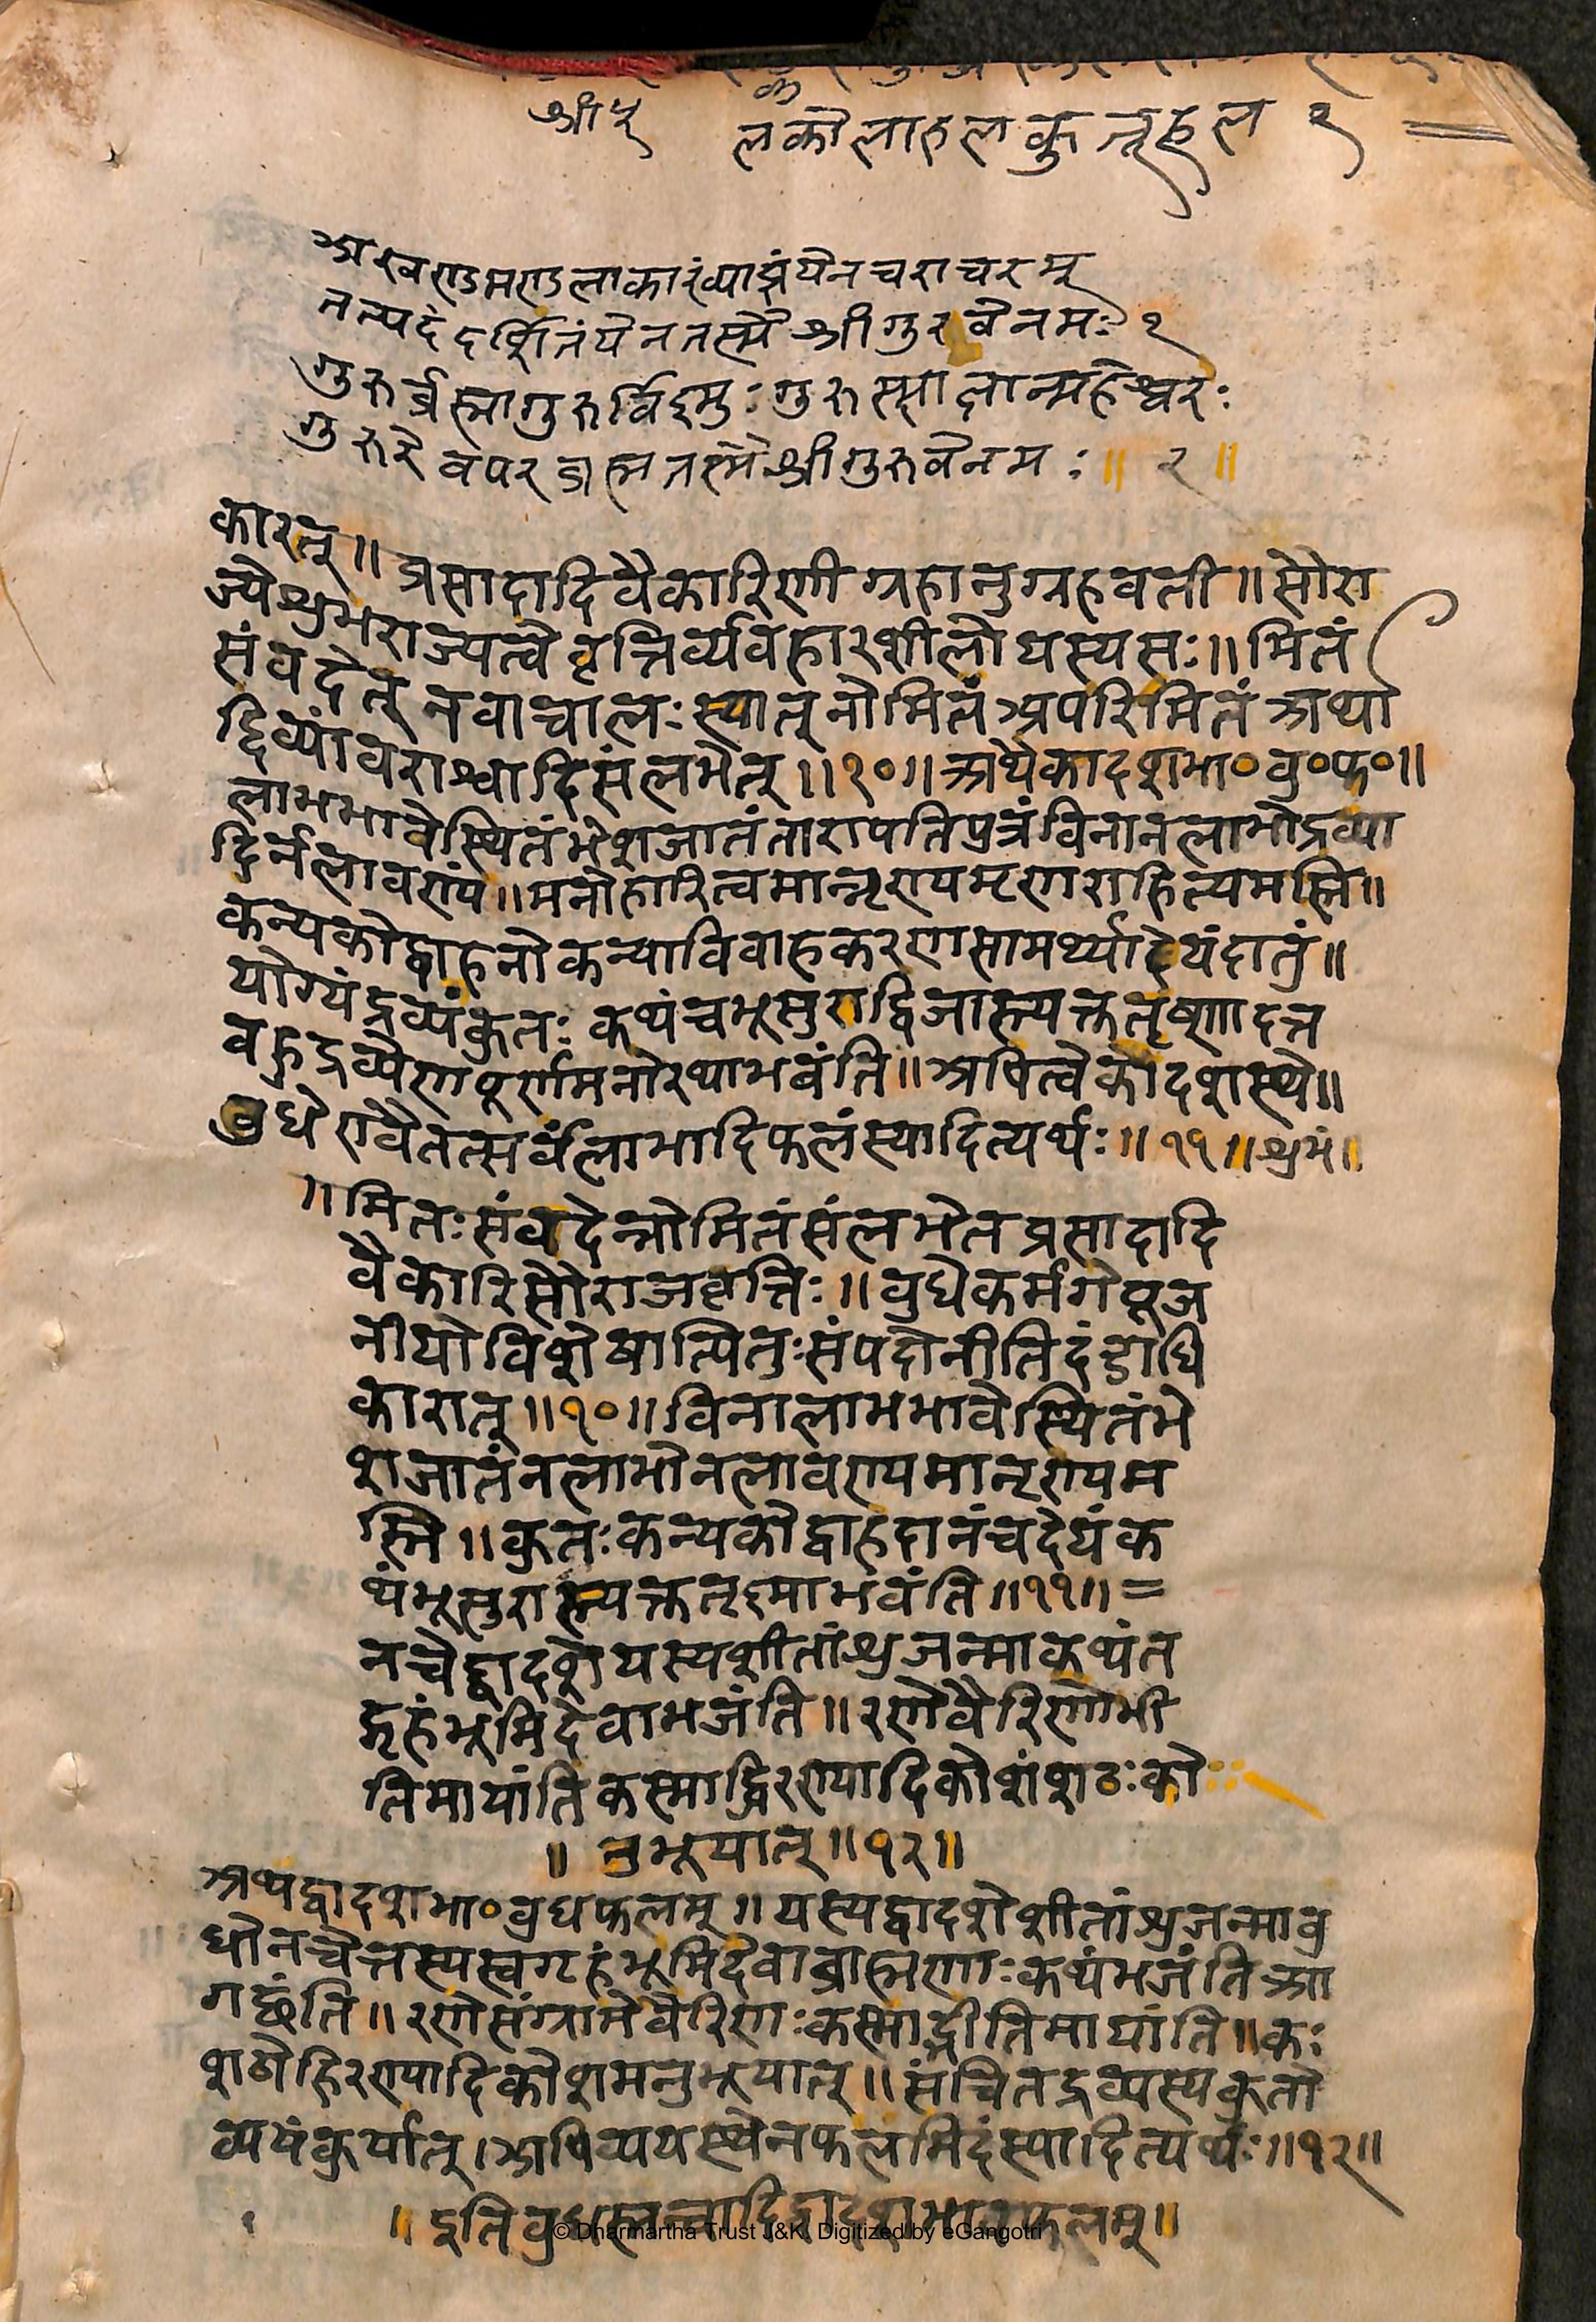 श्रीर
लकोलाहलकुतूहल २
अखण्डमण्डलाकारंव्याप्तंयेनचराचरम्
तत्पदंदर्शितंयेनतस्मैश्रीगुरवेनमः १
गुरुर्ब्रह्मागुरुर्विष्णुः गुरुस्साक्षान्महेश्वरः
गुरुरेवपरब्रह्मतस्मैश्रीगुरुवेनमः ॥ २ ॥
कारत् ॥ प्रसादादिवैकारिणीग्रहानुग्रहवती ॥ सौरा
ज्येशुभराज्यत्वेवृत्तिर्व्यवहारशीलोयस्यसः ॥ मितं
संवदेत् नवाचालः स्यात् नोमितं अपरिमितं अथा
द्दिव्यांवराश्वादिसंलभेत् ॥ १० ॥ अथैकादशभा० बु० फ० ॥
लाभभावेस्थितंभेशजातंतारापतिपुत्रंविनानलाभोद्रव्या
दिर्नलावण्यं ॥ मनोहारित्वमानृण्यमृणराहित्यमस्ति ॥
कन्यकोद्वाहनोकन्याविवाहकरणसामर्थ्याद्देयंदातुं ॥
योग्यंद्रव्यंकुतः कथंचभूसुराद्विजास्त्यक्ततृष्णादत्त
बहुद्रव्येणपूर्णमनोरथाभवंति ॥ अपित्वेकादशस्थे ॥
बुधेएवैतत्सर्वंलाभादिफलंस्यादित्यर्थः ॥ ११ ॥ शुभं ॥
॥ मितः संवदेन्नोमितंसंलभेतप्रसादादि
वैकारिसौराजवृत्तिः ॥ बुधेकर्मगेपूज
नीयोविशेषात्पितुः संपदोनीतिदंडाधि
कारात् ॥ १० ॥ विनालाभभावेस्थितंभे
शजातंनलाभोनलावण्यमानृण्यम
स्ति ॥ कुतः कन्यकोद्वाहदानंचदेयंक
थंभूसुरास्त्यक्ततृष्णाभवंति ॥ ११ ॥ =
नचेद्द्वादशेयस्यशीतांशुजन्माकथंत
द्गृहंभूमिदेवाभजंति ॥ रणेवैरिणोभी
तिमायांतिकस्माद्धिरण्यादिकोशंशठः को
॥ नुभूयात् ॥ १२ ॥
अथद्वादशभा० बुधफलम् ॥ यस्यद्वादशेशीतांशुजन्माबु
धोनचेत्तस्यस्वगृहंभूमिदेवाब्राह्मणाः कथंभजंतिआ
गछंति ॥ रणेसंग्रामेवैरिणः कस्माद्भीतिमायांति ॥ कः
शठोहिरण्यादिकोशमनुभूयात् ॥ संचितद्रव्यस्यकुतो
व्ययंकुर्यात् । अपिव्ययस्थेनफलमिदंस्यादित्यर्थः ॥ १२ ॥
॥ इतिबुधस्यतन्वादिद्वादशभावफलम् ॥
© Dharmartha Trust J&K. Digitized by eGangotri